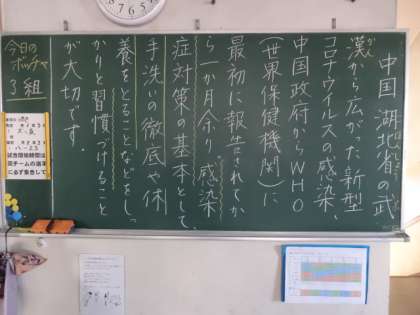 中国 湖北省の武
漢から広がった新型
コロナウイルスの感染、
中国政府からWHO
(世界保健機関)に
最初に報告されてか
ら一か月余り、感染
症対策の基本として、
手洗いの徹底や休
養をとることなどをし、
かりと習慣づけること
が大切です。
今日の
ボッチャ
3組